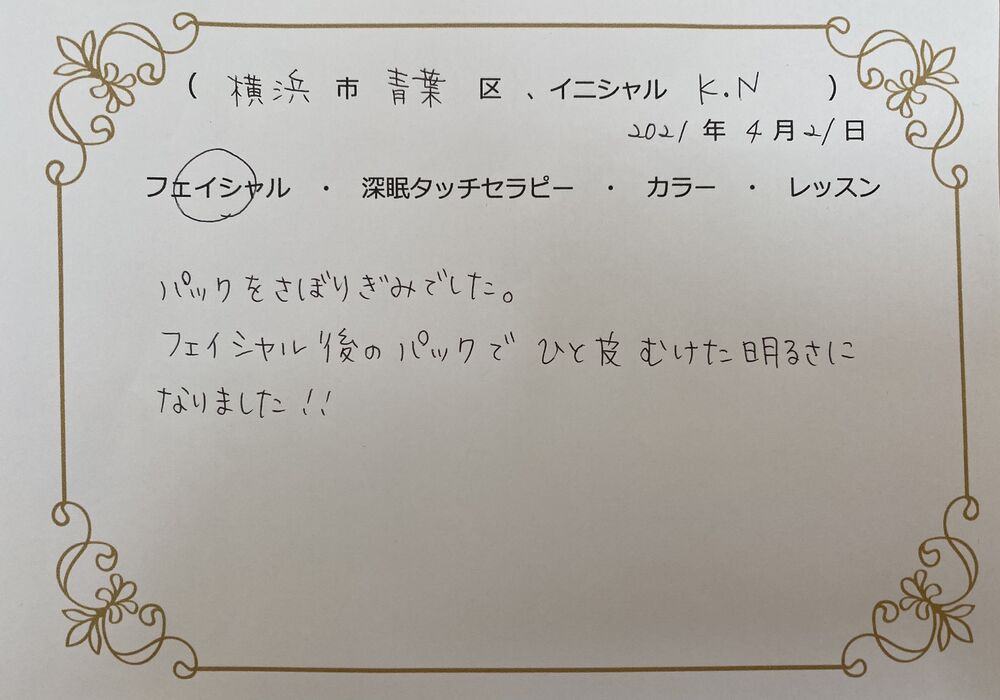 ( 横浜 市 青葉 区 、イニシャル K.N )
2021 年 4 月 21 日
フェイシャル ・ 深眠タッチセラピー ・ カラー ・ レッスン
パックをさぼりぎみでした。
フェイシャル後のパックで ひと皮 むけた明るさに
なりました!!